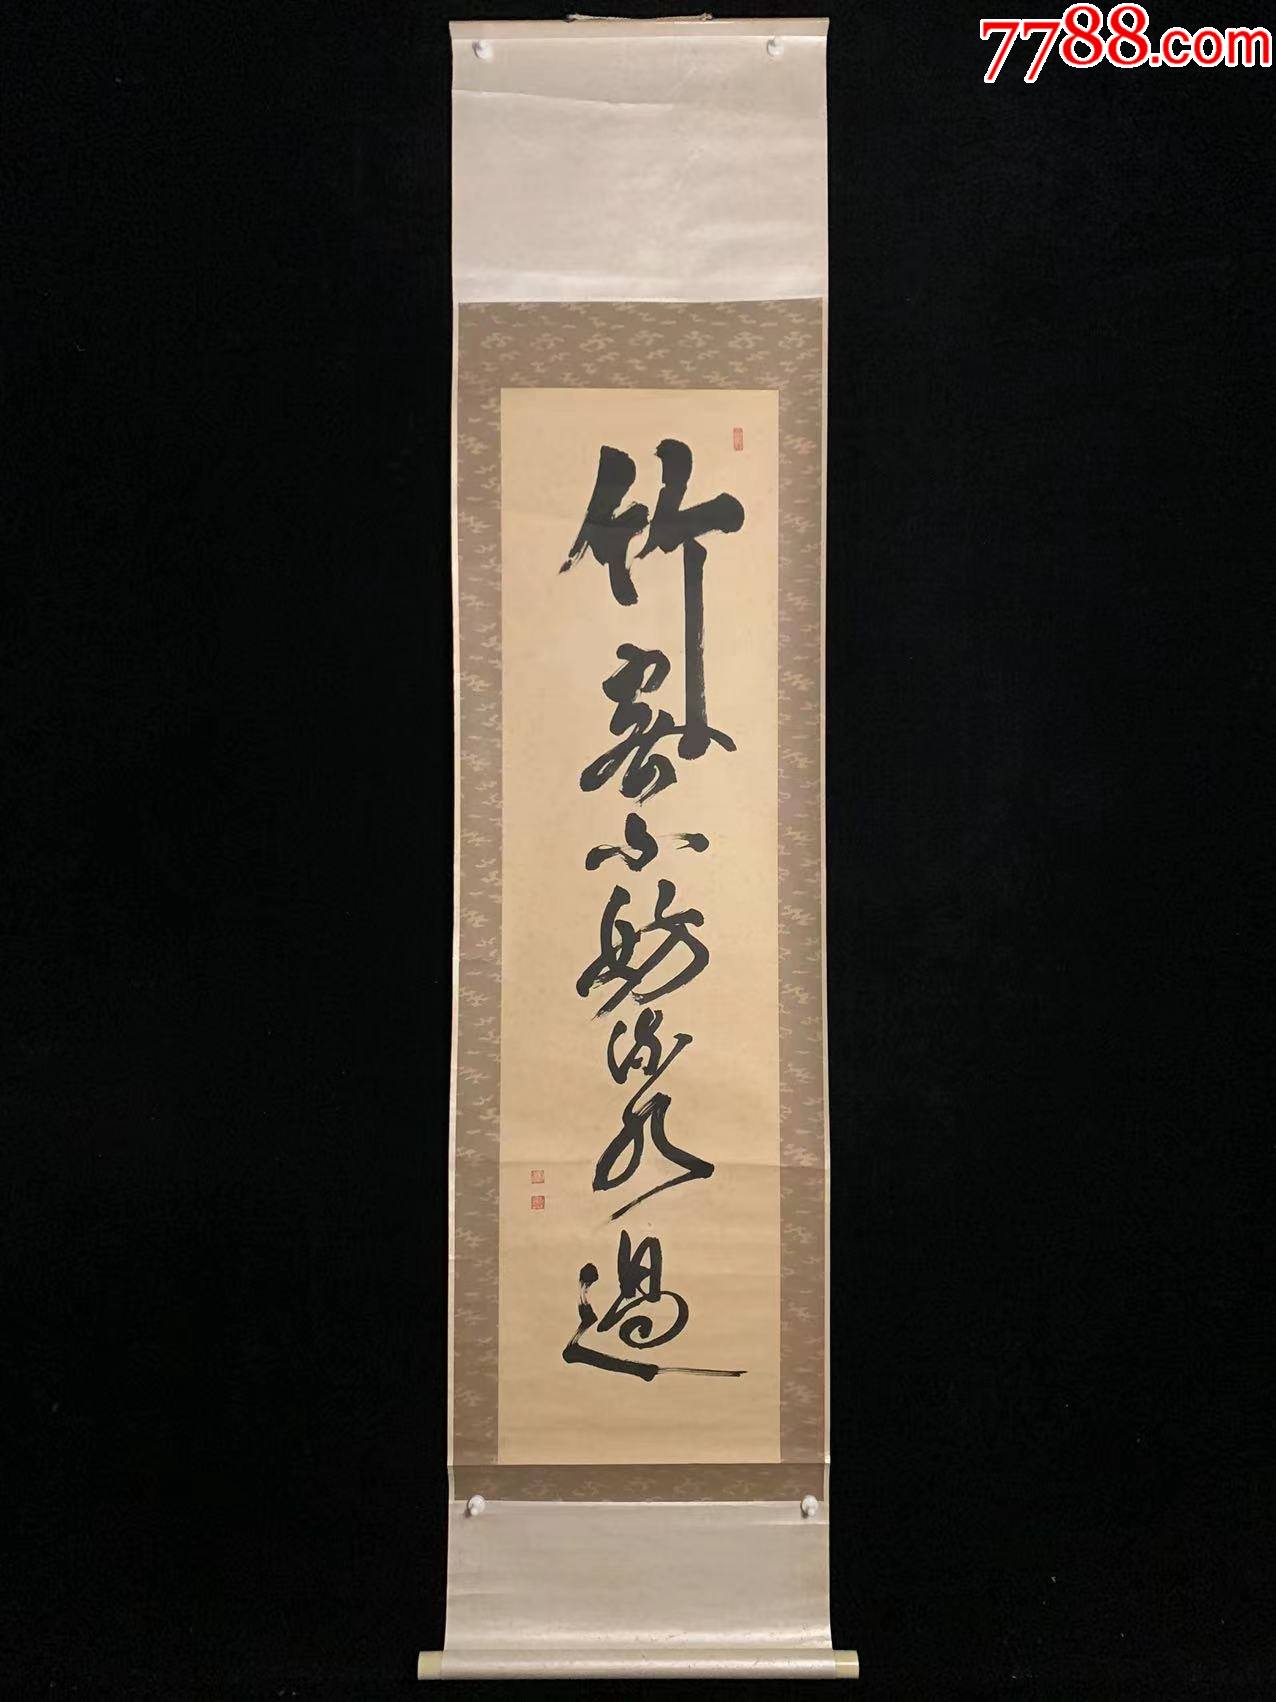 7788.com
竹密不妨流水過